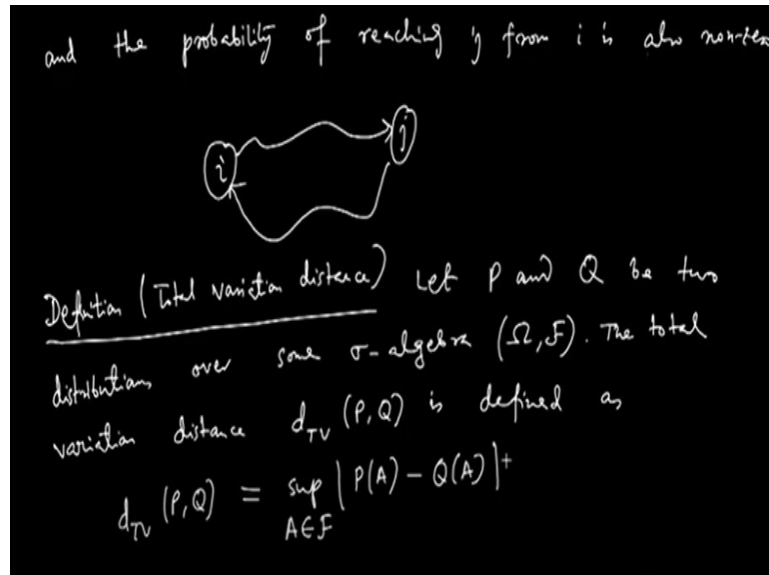 and the probability of reaching j from i is also non-zero
i
j
Definition (Total variation distance) Let P and Q be two
distributions over some σ-algebra (Ω, F). The total
variation distance d_TV (P, Q) is defined as
d_TV (P, Q) = sup_{A∈F} |P(A) - Q(A)|